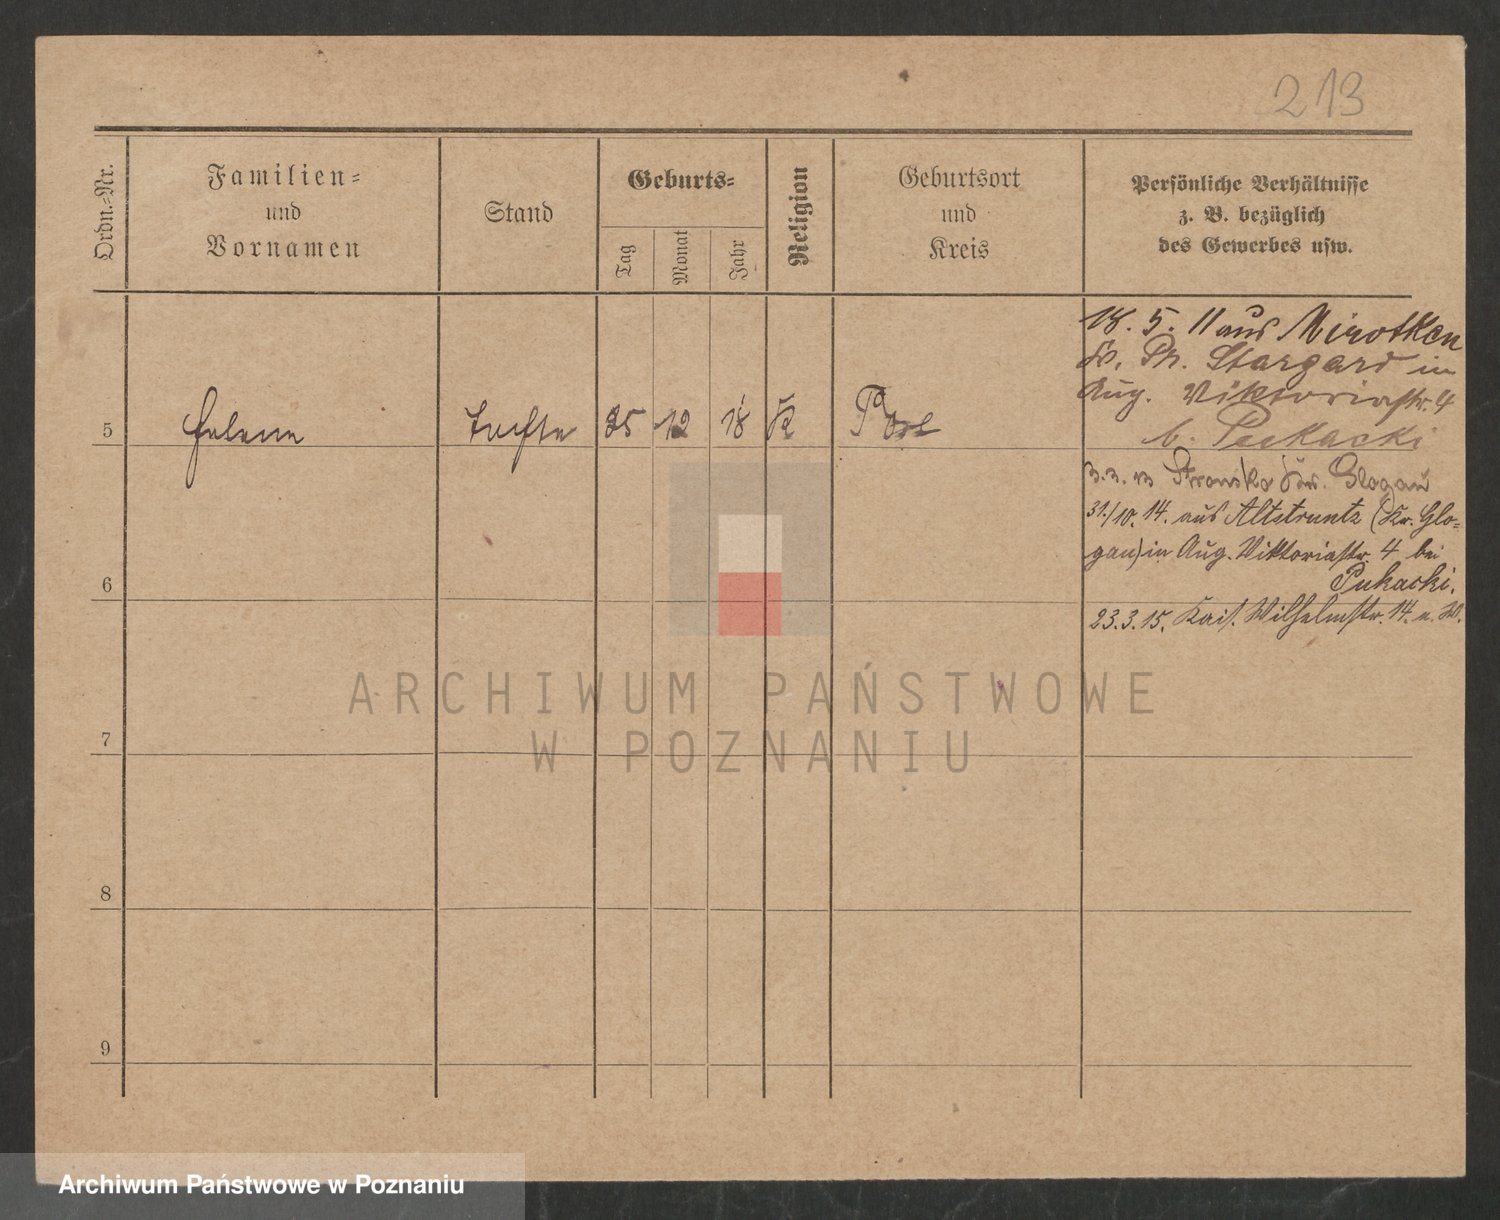 213
Ordn.-Nr.
Familien-
und
Vornamen
Stand
Geburts-
Tag
Monat
Jahr
Religion
Geburtsort
und
Kreis
Persönliche Verhältnisse
z. B. bezüglich
des Gewerbes usw.
18. 5. 11 aus Mirotken
Kr. Pr. Stargard in
Aug. Viktoriastr. 4
b. Pukacki
5 Helene 25 12 18 K
3. 3. 13 Glogau
31./10. 14. aus Altstruntz (Kr. Glo-
gau) in Aug. Viktoriastr. 4 bei
Pukacki.
6
23. 3. 15. Kais. Wilhelmstr. 14. n. W.
7
8
9
ARCHIWUM PAŃSTWOWE
W POZNANIU
Archiwum Państwowe w Poznaniu